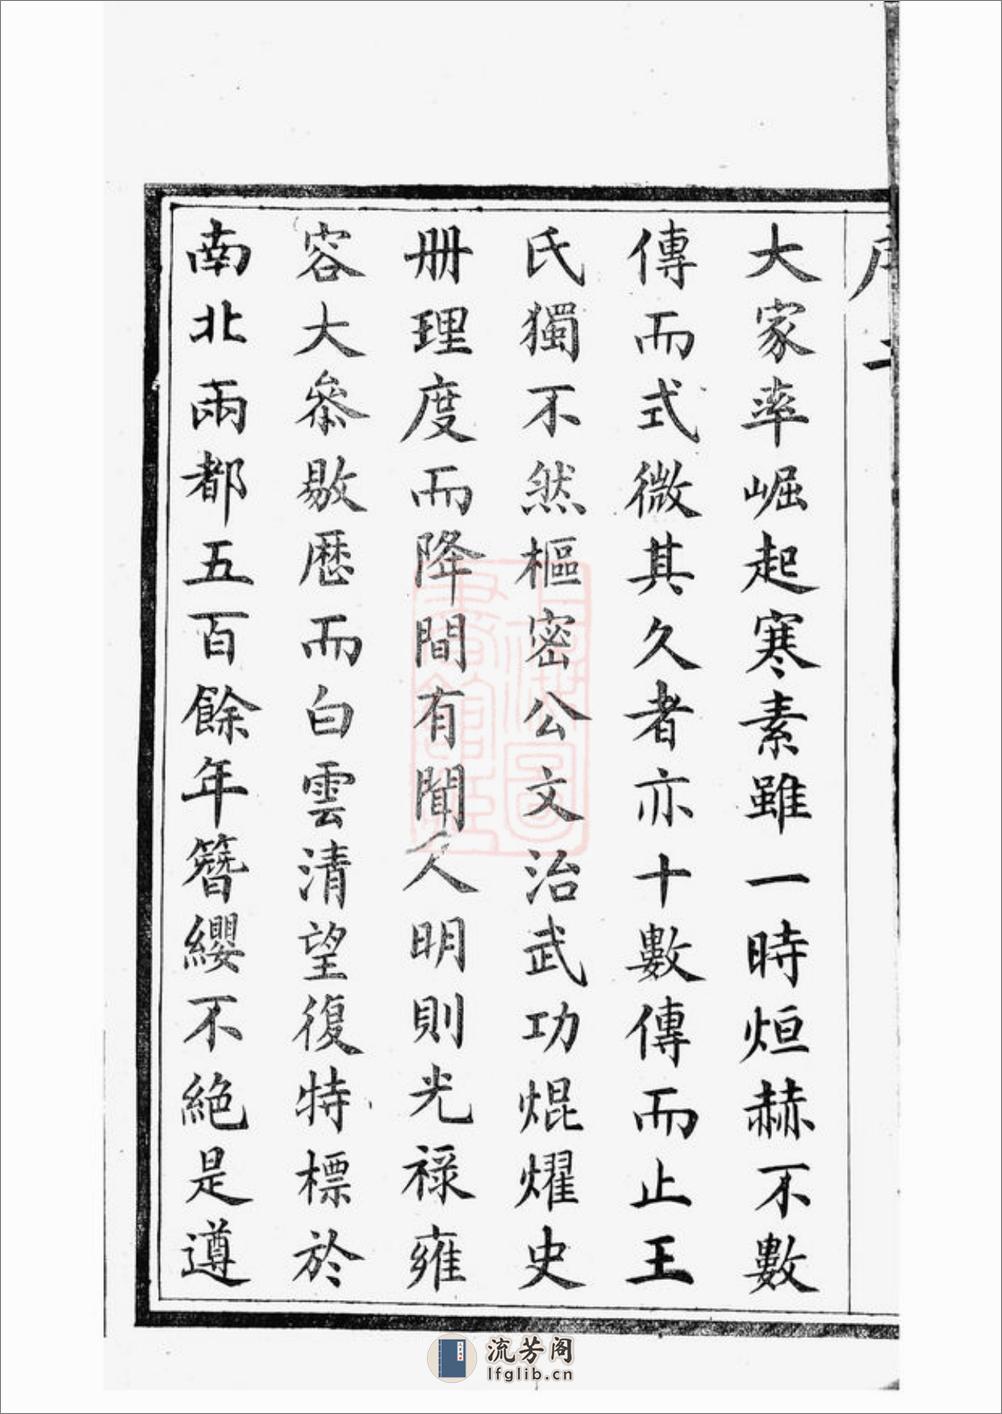 大家率崛起寒素雖一時烜赫不數
傳而式微其久者亦十數傳而止王
氏獨不然樞密公文治武功焜燿史
册理度而降間有聞人明則光祿雍
容大叅敭歷而白雲清望復特標於
南北兩都五百餘年簪纓不絕是遵
流芳阁
lfglib.cn